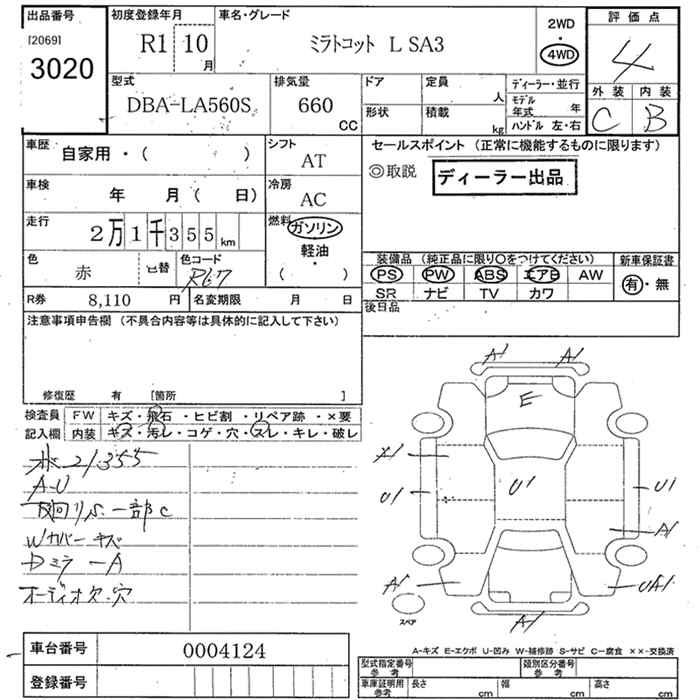 出品番号
[2069]
3020
初度登録年月
R1 10月
車名・グレード
ミラトコット L SA3
2WD
・
4WD
評価点
4
外装 内装
C B
型式
DBA-LA560S
排気量
660 CC
ドア
定員 人
形状
積載 kg
ディーラー・並行
モデル年式 年
ハンドル 左・右
車歴
自家用・( )
シフト
AT
車検
年 月 ( 日)
冷房
AC
走行
2万1千355km
燃料
ガソリン
軽油
・
( )
色
赤
色替
色コード
R67
R券
8,110 円
名変期限 月 日
セールスポイント (正常に機能するものに限ります)
◎取説
ディーラー出品
装備品 (純正品に限り○をつけてください)
PS PW ABS エアB AW
SR ナビ TV カワ
新車保証書
有・無
後日品
注意事項申告欄 (不具合内容等は具体的に記入して下さい)
修復歴 有 [箇所 ]
検査員
記入欄
FW キズ・飛石・ヒビ割・リペア跡・×要
内装 キズ・汚レ・コゲ・穴・スレ・キレ・破レ
21355
A-U
下廻りS.一部C
Wカバーキズ
Dミラ-A
オーディオ欠.穴
A1 A1
E
A1
U1 U1 U1
A1
A1 UA1
A1
スペア
A-キズ E-エクボ U-凹み W-補修跡 S-サビ C-腐食 ××-交換済
車台番号
0004124
登録番号
型式指定番号
参考
類別区分番号
参考
車庫証明用
参考
長さ cm
幅 cm
高さ cm